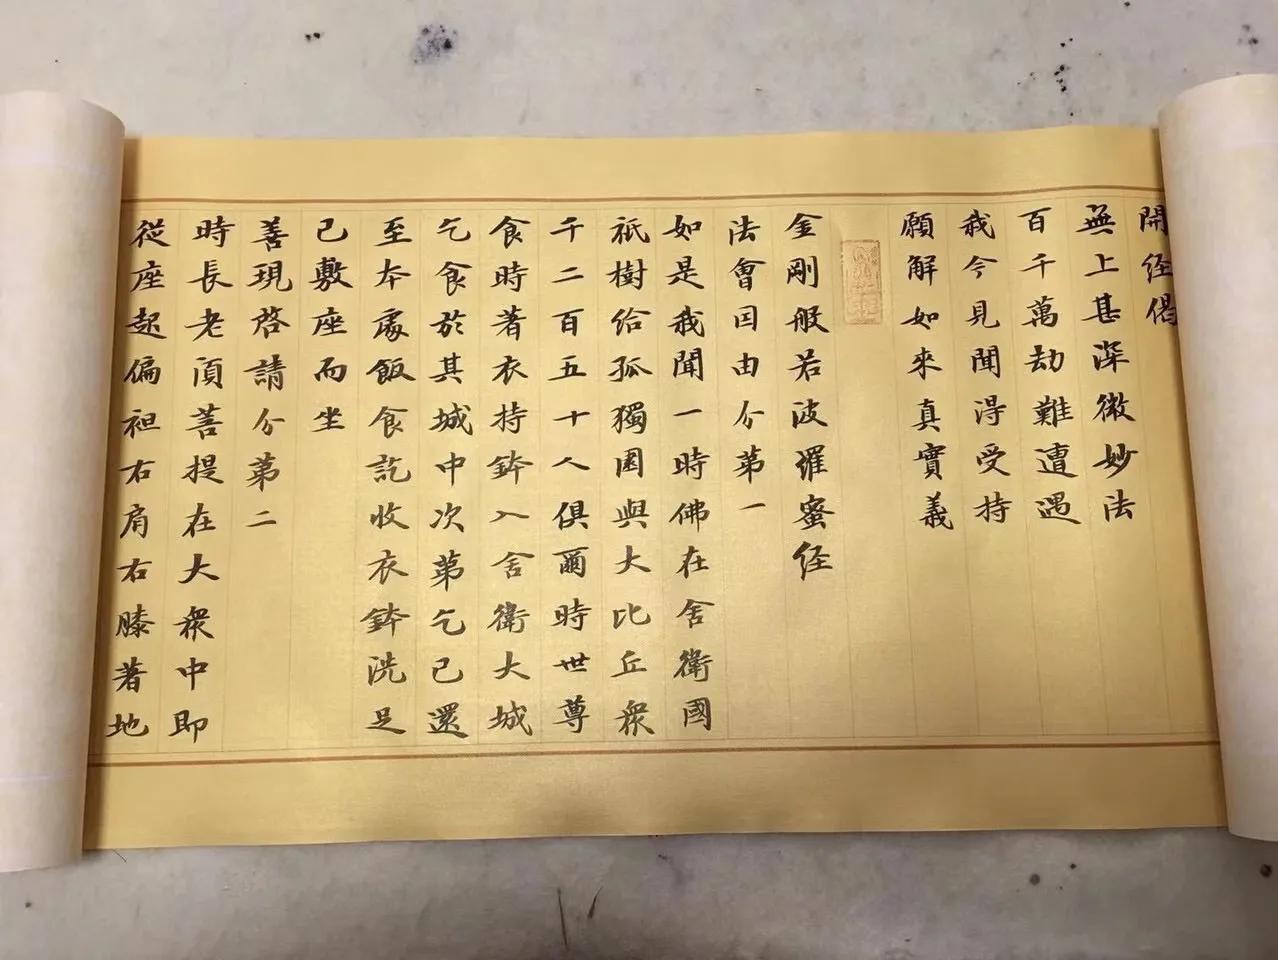 開経偈
無上甚深微妙法
百千萬劫難遭遇
我今見聞得受持
願解如來真實義
金剛般若波羅蜜経
法會因由分第一
如是我聞一時佛在舍衛國
祇樹給孤獨園與大比丘眾
千二百五十人俱爾時世尊
食時著衣持鉢入舍衛大城
乞食於其城中次第乞已還
至本處飯食訖收衣鉢洗足
已敷座而坐
善現啓請分第二
時長老湏菩提在大眾中即
從座起偏袒右肩右膝著地